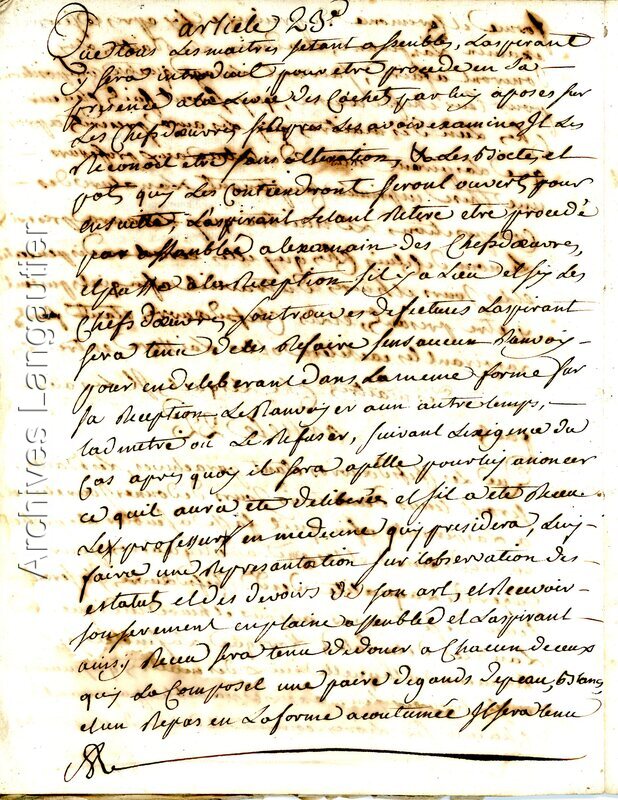 article 23.e
Que tous les maitres setant assembles, Laspirant
y sera introduit pour etre procede en sa
presence a la Levée des Cachets par luy aposes sur
Les Chefs dœuvres si lapres Les avoir examines Il Les
Reconoit etre sans alteration, & les Boetes et
pots quy Les Contiendront seront ouverts pour
ensuitte, Laspirant setant Retire etre procedé
par assamblée a lexamain des Chefs dœuvres,
et passe a la Reception sil y a Lieu et sy Les
Chefs dœuvres sontrouves defectueux Laspirant
sera tenu de les Refaire sens aucun Ranvoy -
pour en deliberant dans La meme forme sur
sa Reception Le Ranvoyer a un autre temps, -
Ladmetre ou Le Refuser, suivant Lexigence du
Cas apres quoy il sera apelle pour luy anoncer
ce quil aura eté deliberé et sil a eté Receu
Le professur en medecine quy presidera, Luy -
faire une Represantation sur lobservation des -
estatuts et des devoirs de son art, et Recevoir -
son serement en plaine assemblée et Laspirant -
ainsy Receu sera tenu de doner a Chacun de ceux
quy La Composet une paire de gands de peau, blancs
et un Repas en La forme acoutumée Il sera tenu
Archives Langautier